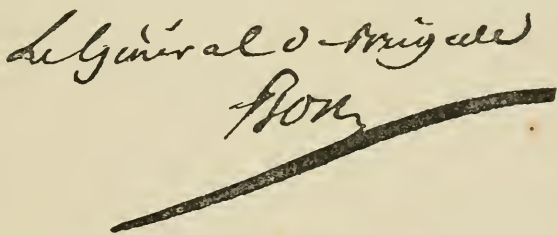 Le Général d-Brigade
Bon